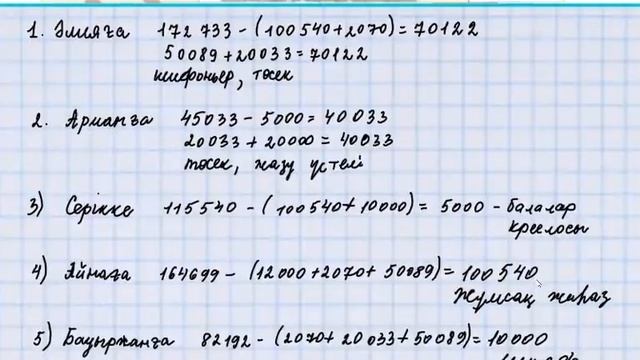 1. Әлияға 172 733 - (100 540 + 2070) = 70122
50089 + 20033 = 70122
шифоньер, төсек
2. Арманға 45033 - 5000 = 40033
20033 + 20000 = 40033
төсек, жазу үстелі
3) Серікке 115540 - (100 540 + 10000) = 5000 - балалар
креслосы
4) Айнаға 164699 - (12000 + 2070 + 50089) = 100 540
жұмсақ жиһаз
5) Бауыржанға 82192 - (2070 + 20033 + 50089) = 10000